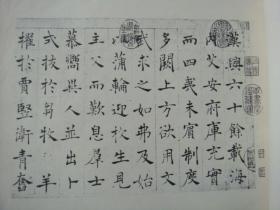 漢興六十餘載海
內艾安府庫充實
而四夷未賓制度
多闕上方欲用文
武求之如弗及始
以蒲輪迎枚生見
主父而歎息羣士
慕嚮異人並出卜
式拔於芻牧羊
擢於賈豎衛青奮